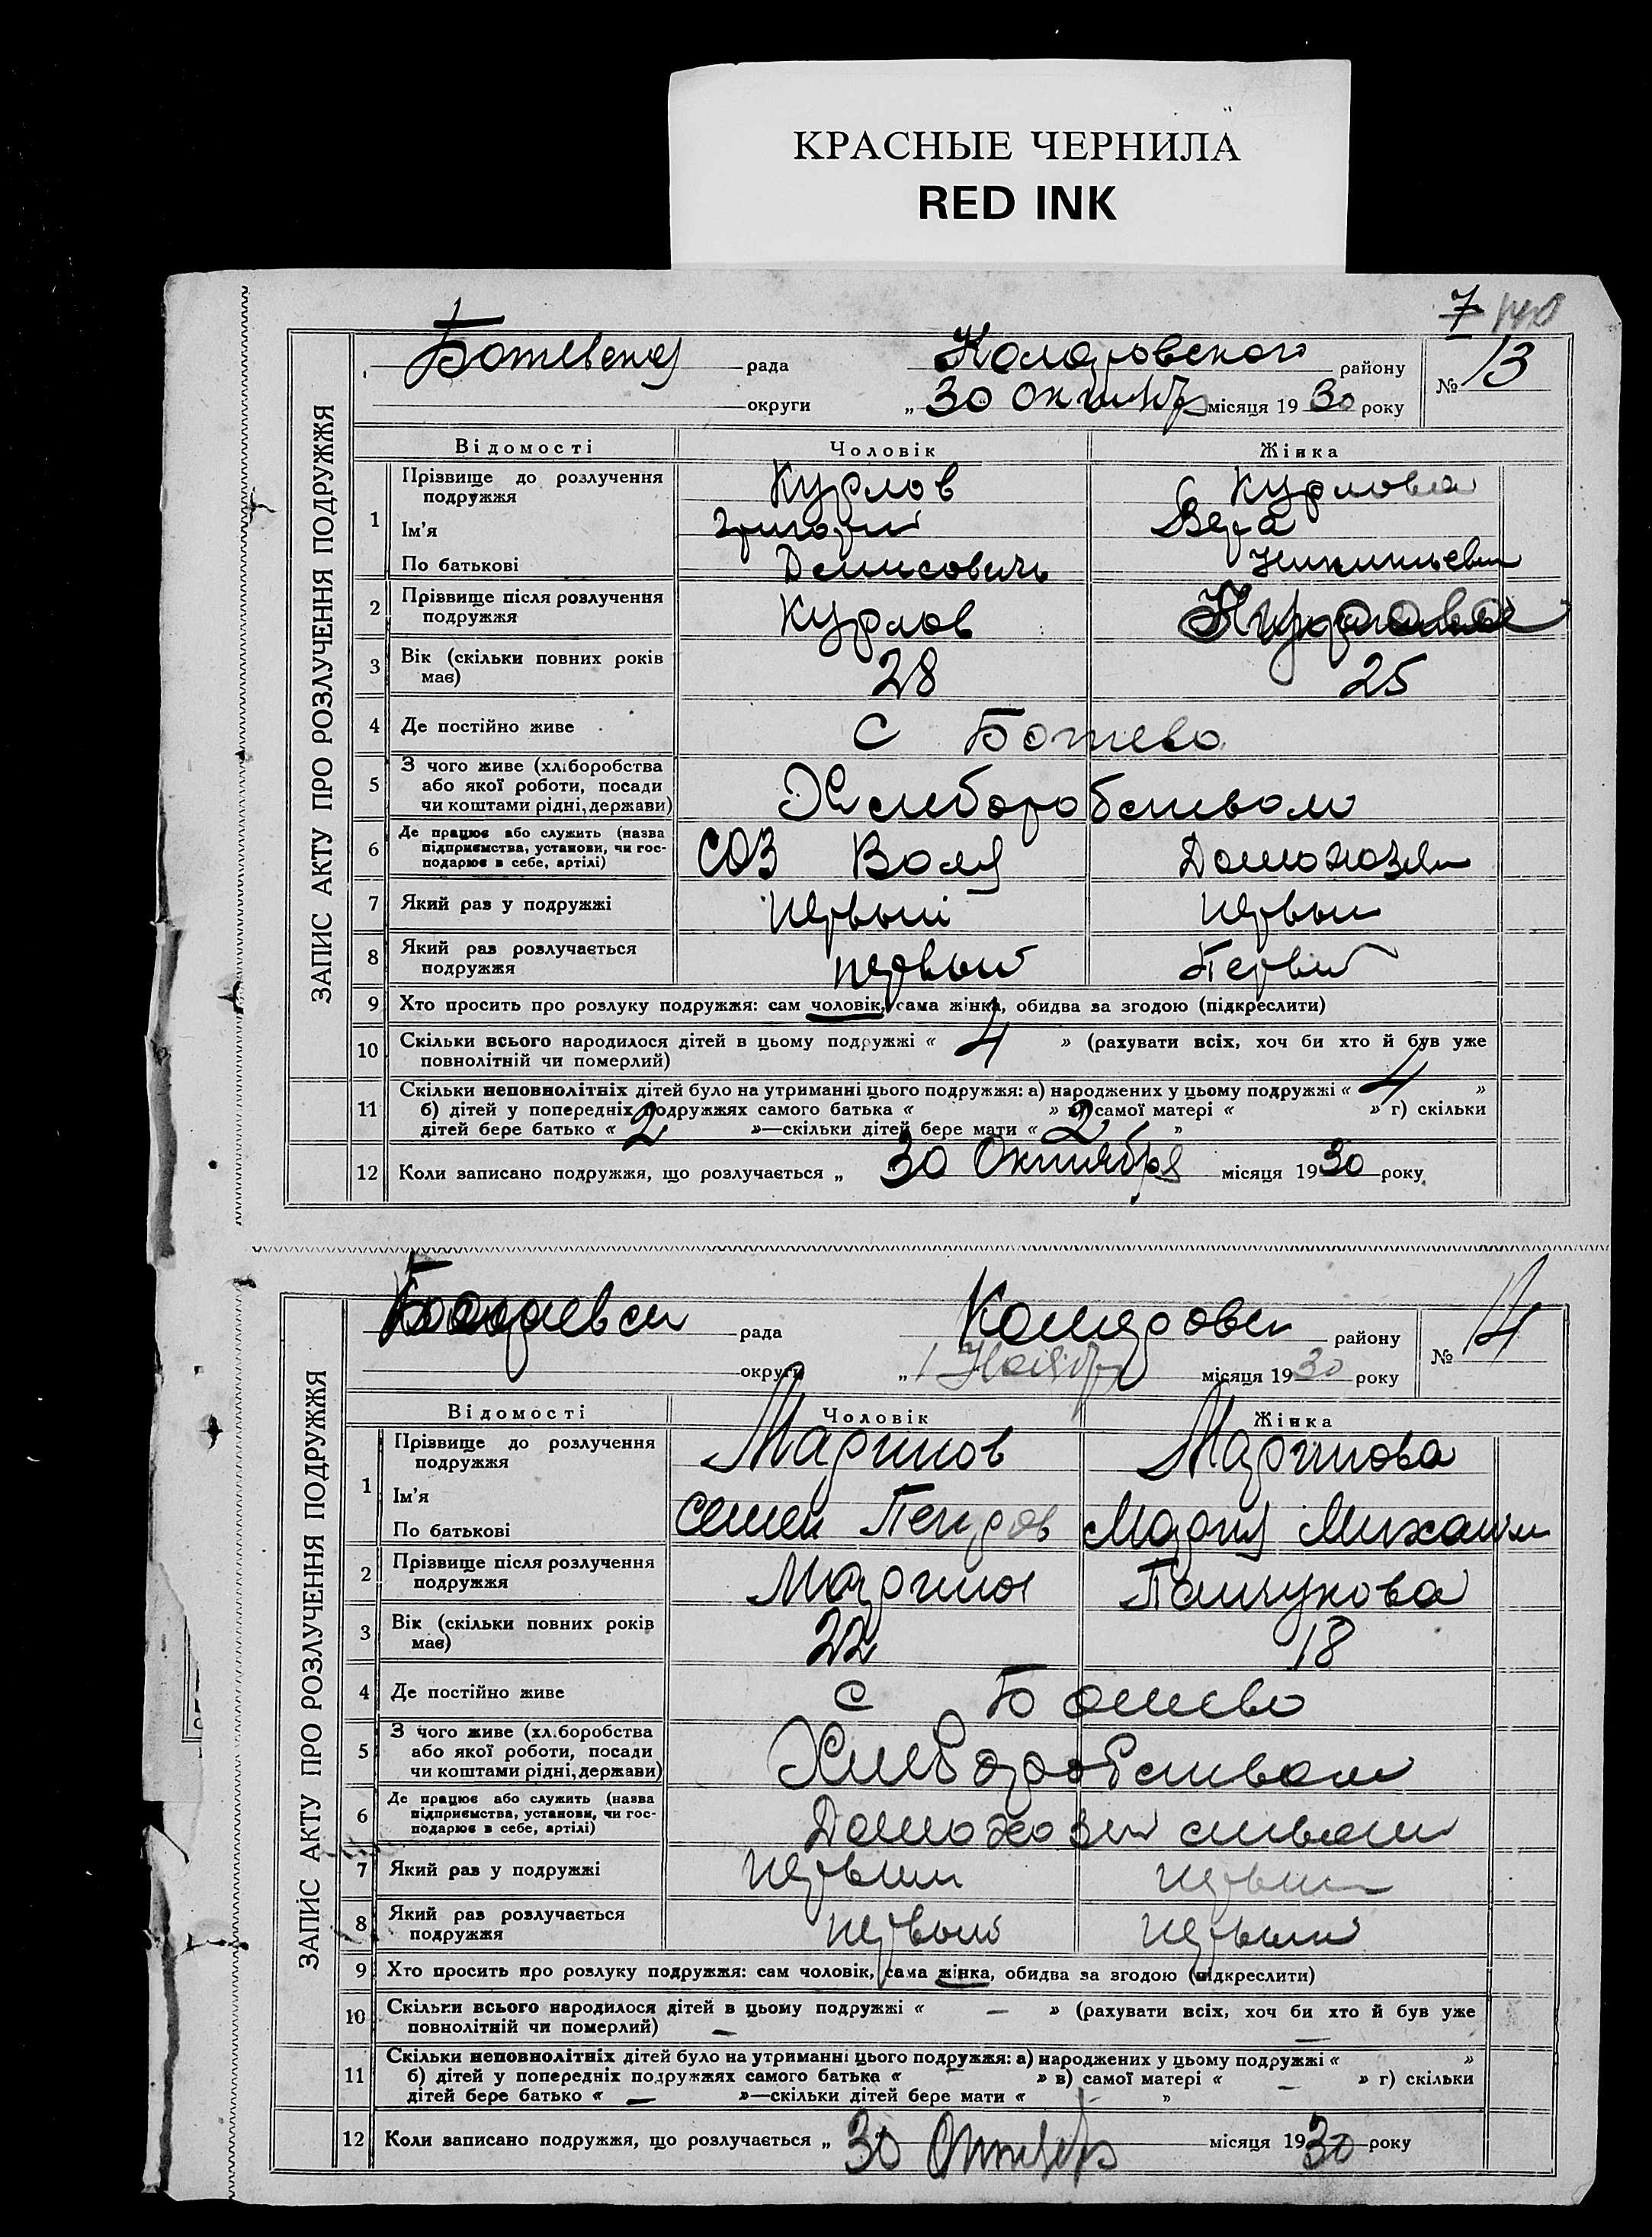 КРАСНЫЕ ЧЕРНИЛА
RED INK
7
ЗАПИС АКТУ ПРО РОЗЛУЧЕННЯ ПОДРУЖЖЯ
Ботевская рада Коларовского району № 13
округи „ 30 Октября місяця 1930 року
Відомості Чоловік Жінка
1 Прізвище до розлучення подружжя Курлов Курлова
Ім'я Григорий Вера
По батькові Денисовичь
2 Прізвище після розлучення подружжя Курлов
3 Вік (скільки повних років має) 28 25
4 Де постійно живе С Ботево
5 З чого живе (хліборобства або якої роботи, посади чи коштами рідні, держави) Хлеборобством
6 Де працює або служить (назва підприємства, установи, чи господарює в себе, артілі) СОЗ Воля Домохозяй
7 Який раз у подружжі Первый Первый
8 Який раз розлучається подружжя первый Первый
9 Хто просить про розлуку подружжя: сам чоловік, сама жінка, обидва за згодою (підкреслити)
10 Скільки всього народилося дітей в цьому подружжі « 4 » (рахувати всіх, хоч би хто й був уже
повнолітній чи померлий)
11 Скільки неповнолітніх дітей було на утриманні цього подружжя: а) народжених у цьому подружжі « 4 »
б) дітей у попередніх подружжях самого батька « » в) самої матері « » г) скільки
дітей бере батько « 2 »—скільки дітей бере мати « 2 »
12 Коли записано подружжя, що розлучається „ 30 Октября місяця 1930 року
ЗАПИС АКТУ ПРО РОЗЛУЧЕННЯ ПОДРУЖЖЯ
рада Коларовск району № 14
округи „ 1 Ноября місяця 1930 року
Відомості Чоловік Жінка
1 Прізвище до розлучення подружжя Маринов Маринова
Ім'я
По батькові Семен Петров Мария Михайл
2 Прізвище після розлучення подружжя Маринов
3 Вік (скільки повних років має) 22 18
4 Де постійно живе С Ботево
5 З чого живе (хліборобства або якої роботи, посади чи коштами рідні, держави) Хлеборобством
6 Де працює або служить (назва підприємства, установи, чи господарює в себе, артілі) Домохозяйством
7 Який раз у подружжі первый первый
8 Який раз розлучається подружжя первый первый
9 Хто просить про розлуку подружжя: сам чоловік, сама жінка, обидва за згодою (підкреслити)
10 Скільки всього народилося дітей в цьому подружжі « — » (рахувати всіх, хоч би хто й був уже
повнолітній чи померлий) —
11 Скільки неповнолітніх дітей було на утриманні цього подружжя: а) народжених у цьому подружжі « — »
б) дітей у попередніх подружжях самого батька « — » в) самої матері « — » г) скільки
дітей бере батько « — »—скільки дітей бере мати « »
12 Коли записано подружжя, що розлучається „ 30 Октябр місяця 1930 року